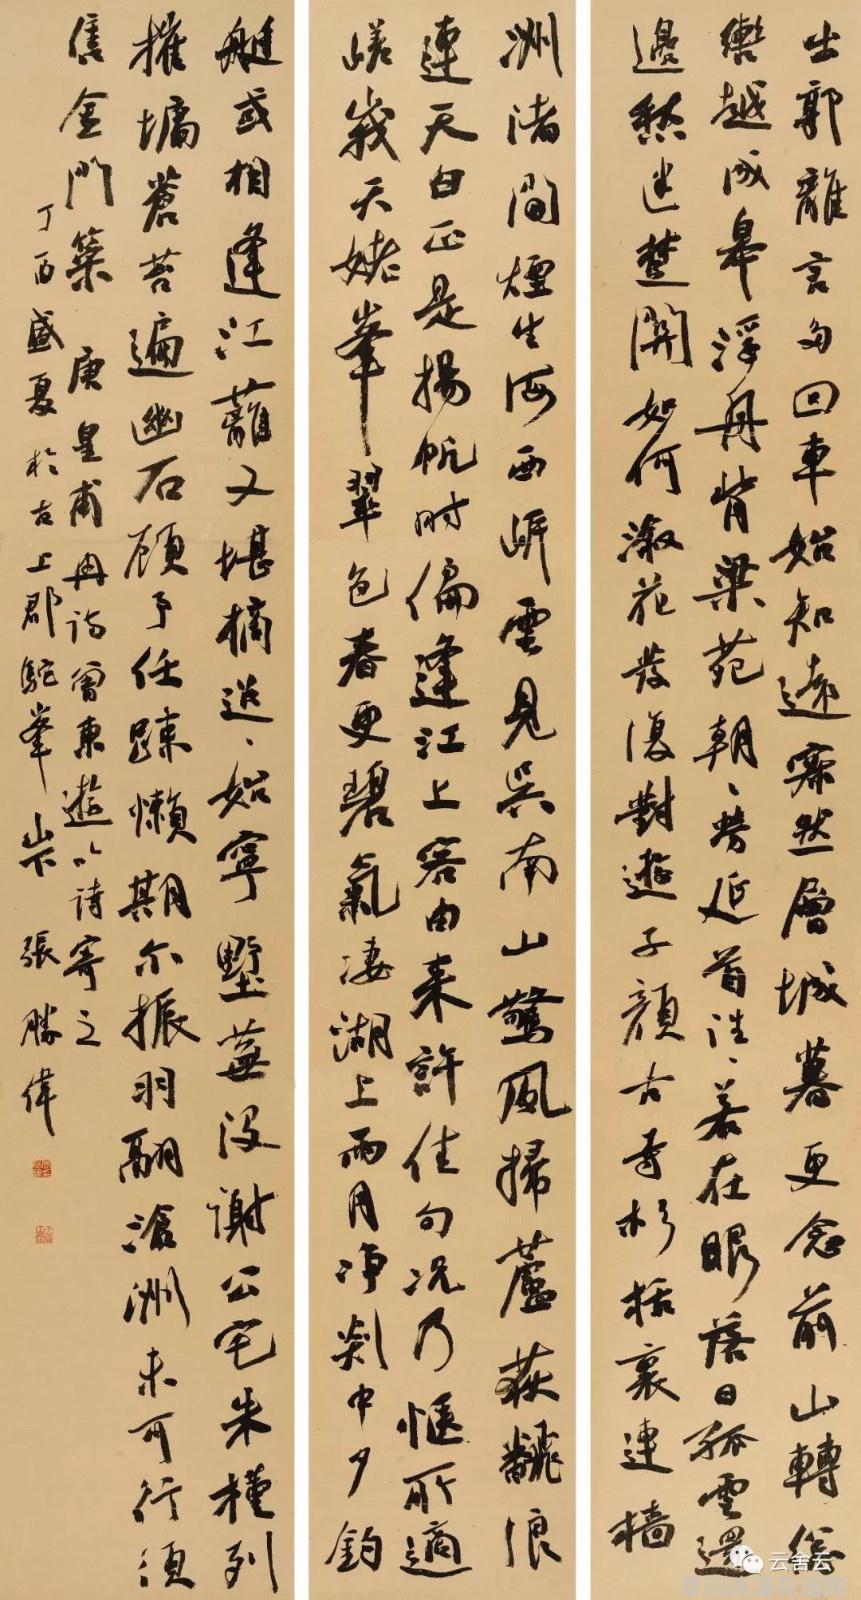 出郭離言多回車始知遠寂然層城暮更念前山轉總
轡越成皋浮舟背梁苑朝〻勞延首往〻若在眼落日孤雲還
邊愁迷楚關如何溆花發復對遊子顏古寺杉栝裏連檣
洲渚間煙生海西岸雲見吳南山驚風掃蘆荻飜浪
連天白正是揚帆時偏逢江上客由來許佳句況乃愜所適
嵯峨天姥峯翠色春更碧氣淒湖上雨月淨剡中夕釣
艇或相逢江蘺又堪摘迢〻始寧墅蕪沒謝公宅朱槿列
摧墉蒼苔遍幽石顧予任疎懶期爾振羽翮滄洲未可行須
售金門策 唐皇甫冉詩曾東遊以詩寄之
丁酉盛夏於古上郡駝峯山下 張勝偉
云舍云